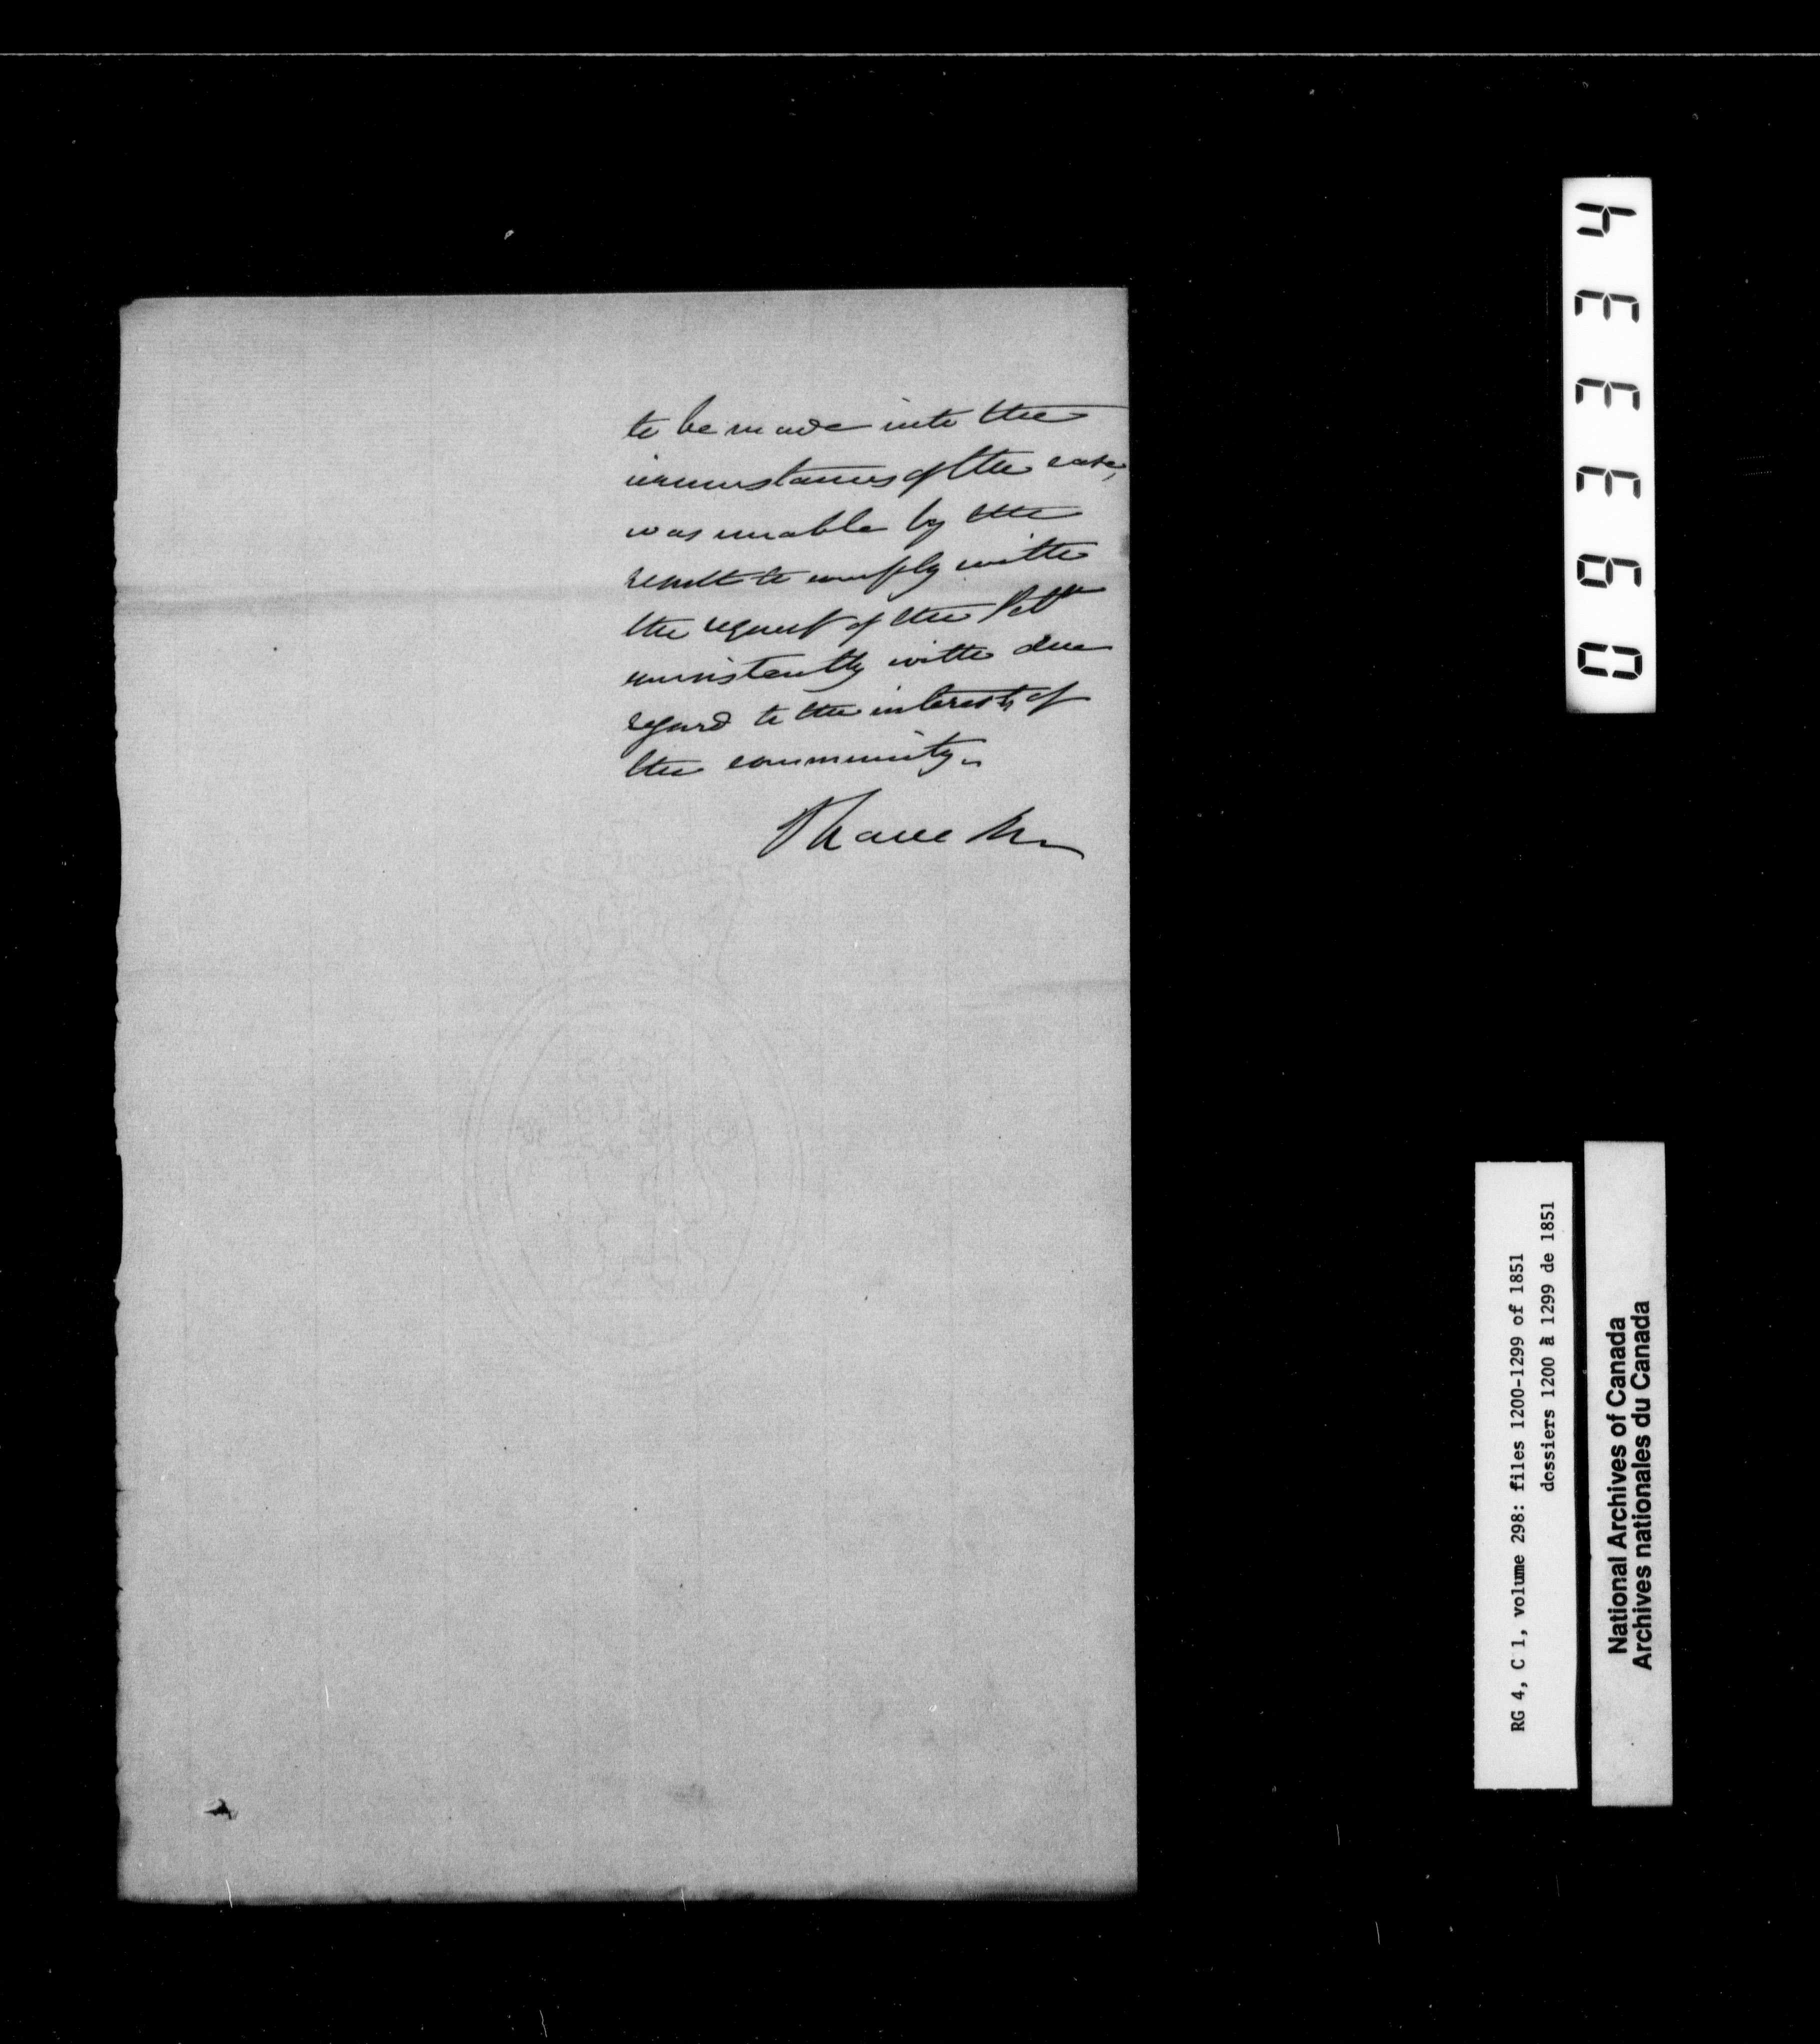 to be made into the
circumstances of the case,
was unable by the
result to comply with
the request of the Petr
consistently with due
regard to the interests of
the community.
I have &c
093334
RG 4, C 1, volume 298: files 1200-1299 of 1851
dossiers 1200 à 1299 de 1851
National Archives of Canada
Archives nationales du Canada